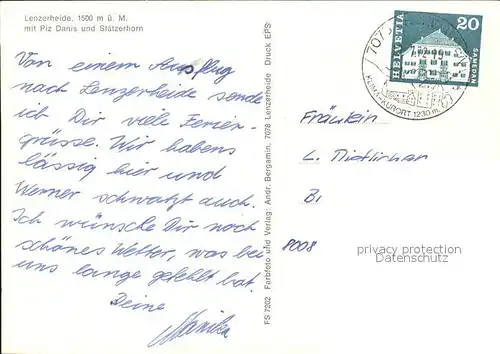 Lenzerheide, 1500 m ü. M.
mit Piz Danis und Stätzerhorn
Von einem Ausflug
nach Lenzerheide sende
ich Dir viele Ferien-
grüsse. Wir habens
lässig hier und
Werner schwatzt auch.
Ich wünsche Dir noch
schönes Wetter, was bei
uns lange gefehlt hat.
Deine
Monika
FS 7202 Farbfoto und Verlag: Andr. Bergamin, 7078 Lenzerheide Druck EPS
707
KLIMA-KURORT 1230 m
HELVETIA
20
SAMEDAN
Fräulein
L.
8008
privacy protection
Datenschutz